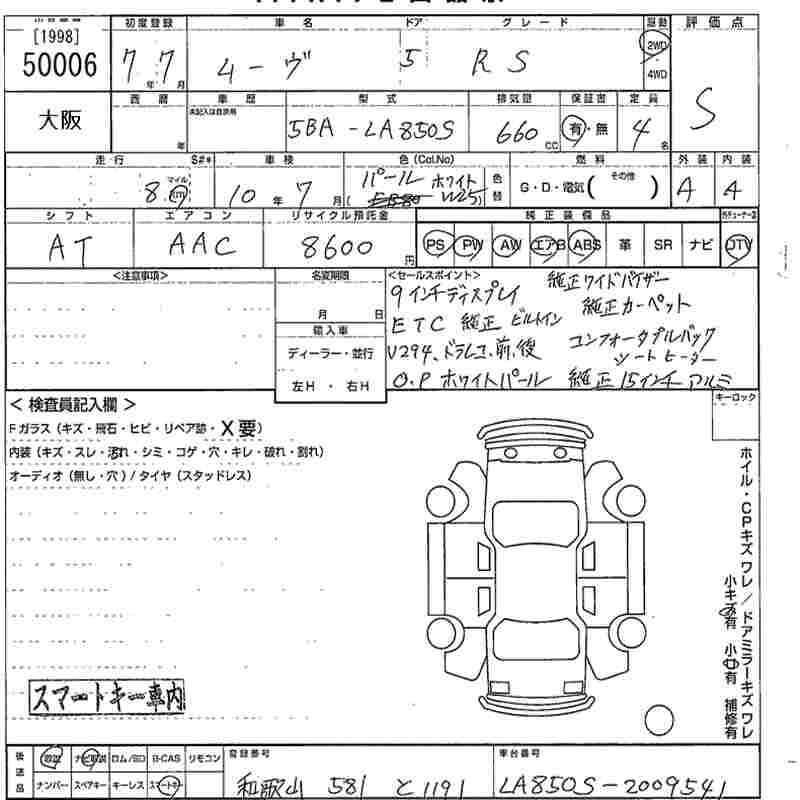 [1998]
50006
大阪
初度登録
7年7月
車名
ムーヴ
ドア
5
グレード
RS
駆動
2WD
4WD
評価点
S
西暦
年
車歴
未記入は自家用
型式
5BA-LA850S
排気量
660 CC
保証書
有・無
定員
4名
走行
8
マイル
km
S#*
車検
10年7月
色(Col.No)
パールホワイト
W25)
色替
燃料
G・D・電気( その他 )
外装
A
内装
4
シフト
AT
エアコン
AAC
リサイクル預託金
8600円
純正装備品
PS PW AW エアB ABS 革 SR ナビ TV
<注意事項>
名変期限
月 日
輸入車
ディーラー・並行
左H・右H
<セールスポイント>
9インチディスプレイ 純正ワイドバイザー
ETC 純正 ビルトイン 純正カーペット
V294、ドラレコ、前、後 コンフォータブルパック
シートヒーター
O.P ホワイトパール 純正15インチアルミ
キーロック
＜検査員記入欄＞
Fガラス(キズ・飛石・ヒビ・リペア跡・X要)
内装(キズ・スレ・汚れ・シミ・コゲ・穴・キレ・破れ・割れ)
オーディオ(無し・穴)/タイヤ(スタッドレス)
ホイル・CPキズ ワレ/ドアミラーキズ ワレ
小キズ有 小凹有 補修有
スマートキー車内
後送品
取説 ナビ取説 ロム/SD B-CAS リモコン
ナンバー スペアキー キーレス スマートキー
登録番号
和歌山 581 と1191
車台番号
LA850S-2009541